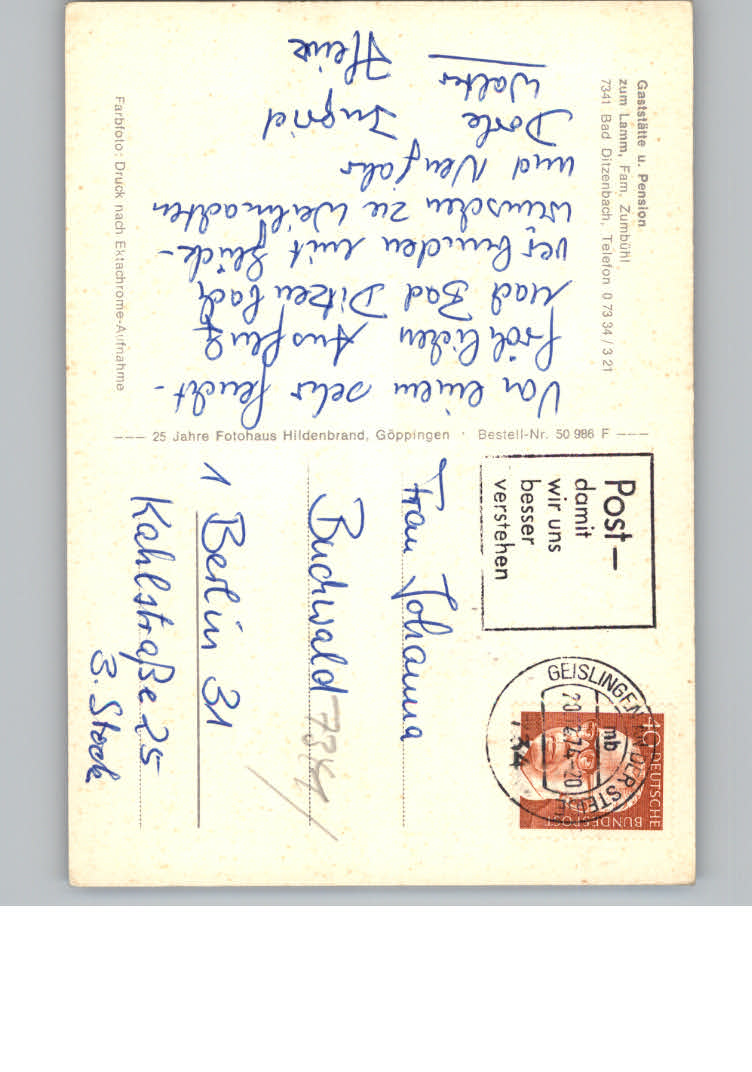 Gaststätte u. Pension
zum Lamm, Fam. Zumbühl
7341 Bad Ditzenbach, Telefon 0 73 34 / 3 21
Von einem sehr feucht-
fröhlichen Ausflug
nach Bad Ditzenbach
verbunden mit Glück-
wünschen zu Weihnachten
und Neujahr
Dorle Ingrid
Walter
Heinz
Farbfoto: Druck nach Ektachrome-Aufnahme
--- 25 Jahre Fotohaus Hildenbrand, Göppingen · Bestell-Nr. 50 986 F ---
Post—
damit
wir uns
besser
verstehen
GEISLINGEN AN DER STEIGE
mb
-20
734
40 DEUTSCHE
BUNDESPOST
Frau Johanna
Buchwald
7341
1 Berlin 31
Kahlstraße 25
3. Stock